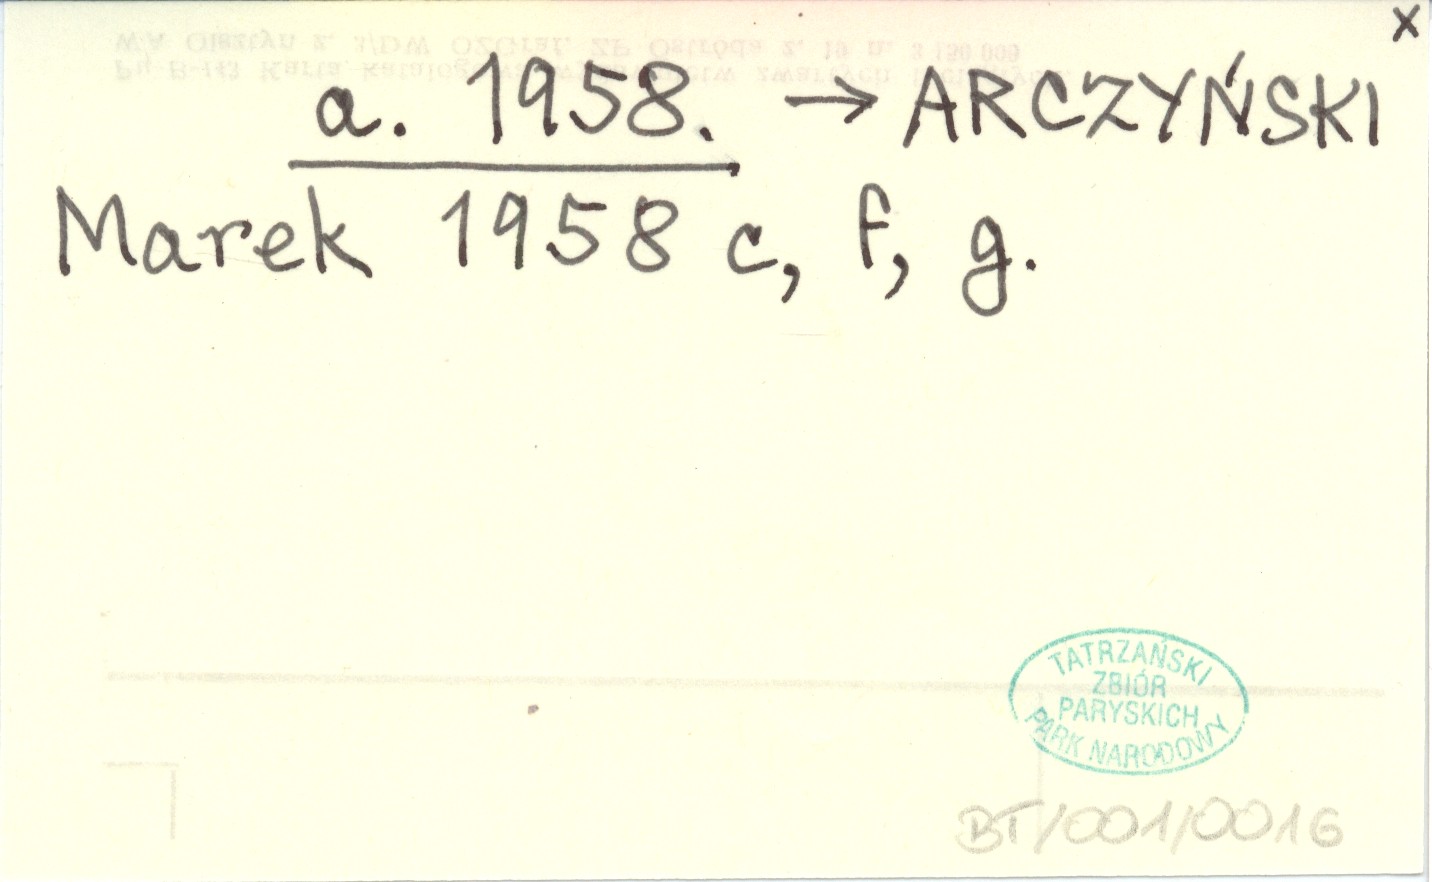 x
a. 1958. → ARCZYŃSKI
Marek 1958 c, f, g.
TATRZAŃSKI
ZBIÓR
PARYSKICH
PARK NARODOWY
BT/001/0016